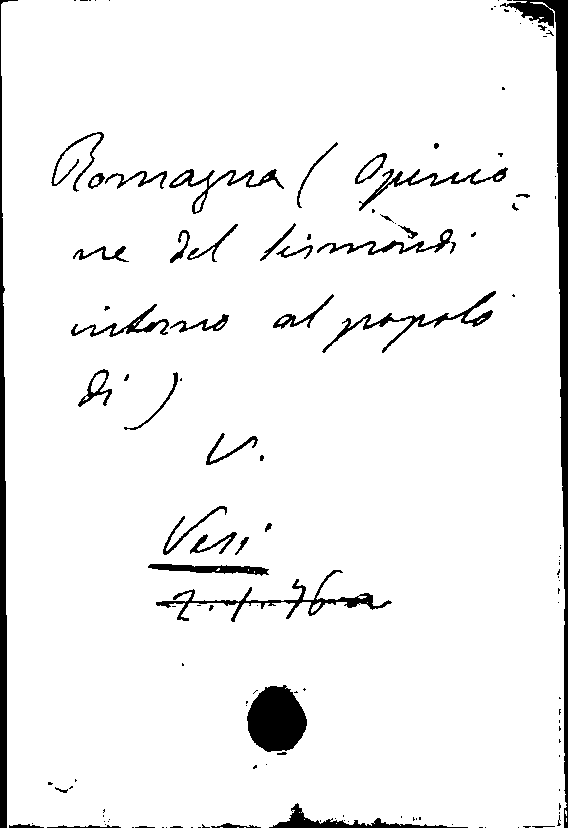 Romagna ( Opinio-
ne del Sismondi
intorno al popolo
di )
V.
Vesi
2. 1. 76